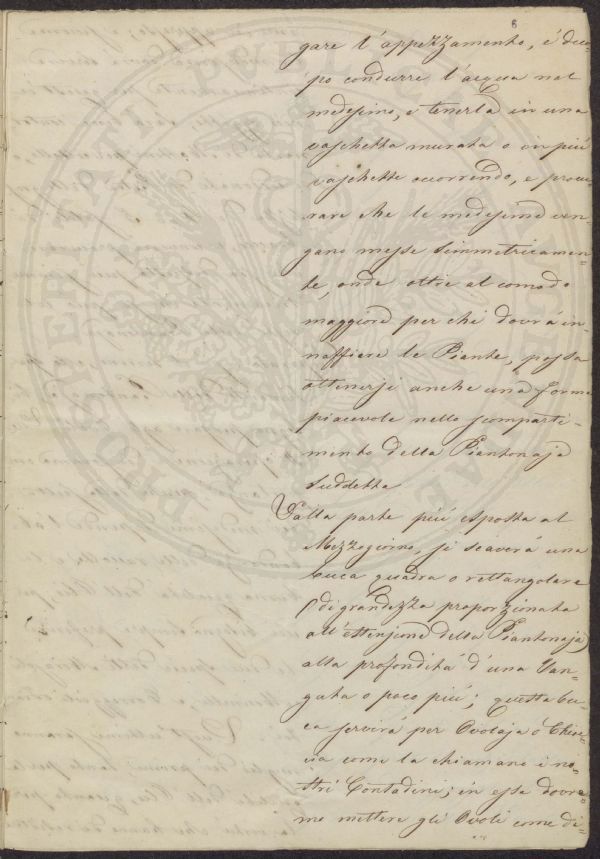 6
gare l'appezzamento, é duo-
po condurre l'acqua nel
medesimo, e tenerla in una
vaschetta murata o in piú
vaschette occorrendo, e procu-
rare che le medesime ven-
gano messe simmetricamen-
te, onde oltre al comodo
maggiore per chi dovrá in-
naffiare le Piante, possa
ottenersi anche una forma
piacevole nello scomparti-
mento della Piantonaja
suddetta
Dalla parte piú esposta al
Mezzogiorno, si scaverá una
buca quadra o rettangolare
(di grandezza proporzionata
all'estensione della Piantonaja)
alla profonditá d'una Van-
gata o poco piú; questa bu-
ca servirá per Ovolaja o
come la chiamano i no-
stri Contadini; in essa dovre-
mo mettere gli Ovoli come di-
PROSPERITATI PUBLICAE AUGENDAE